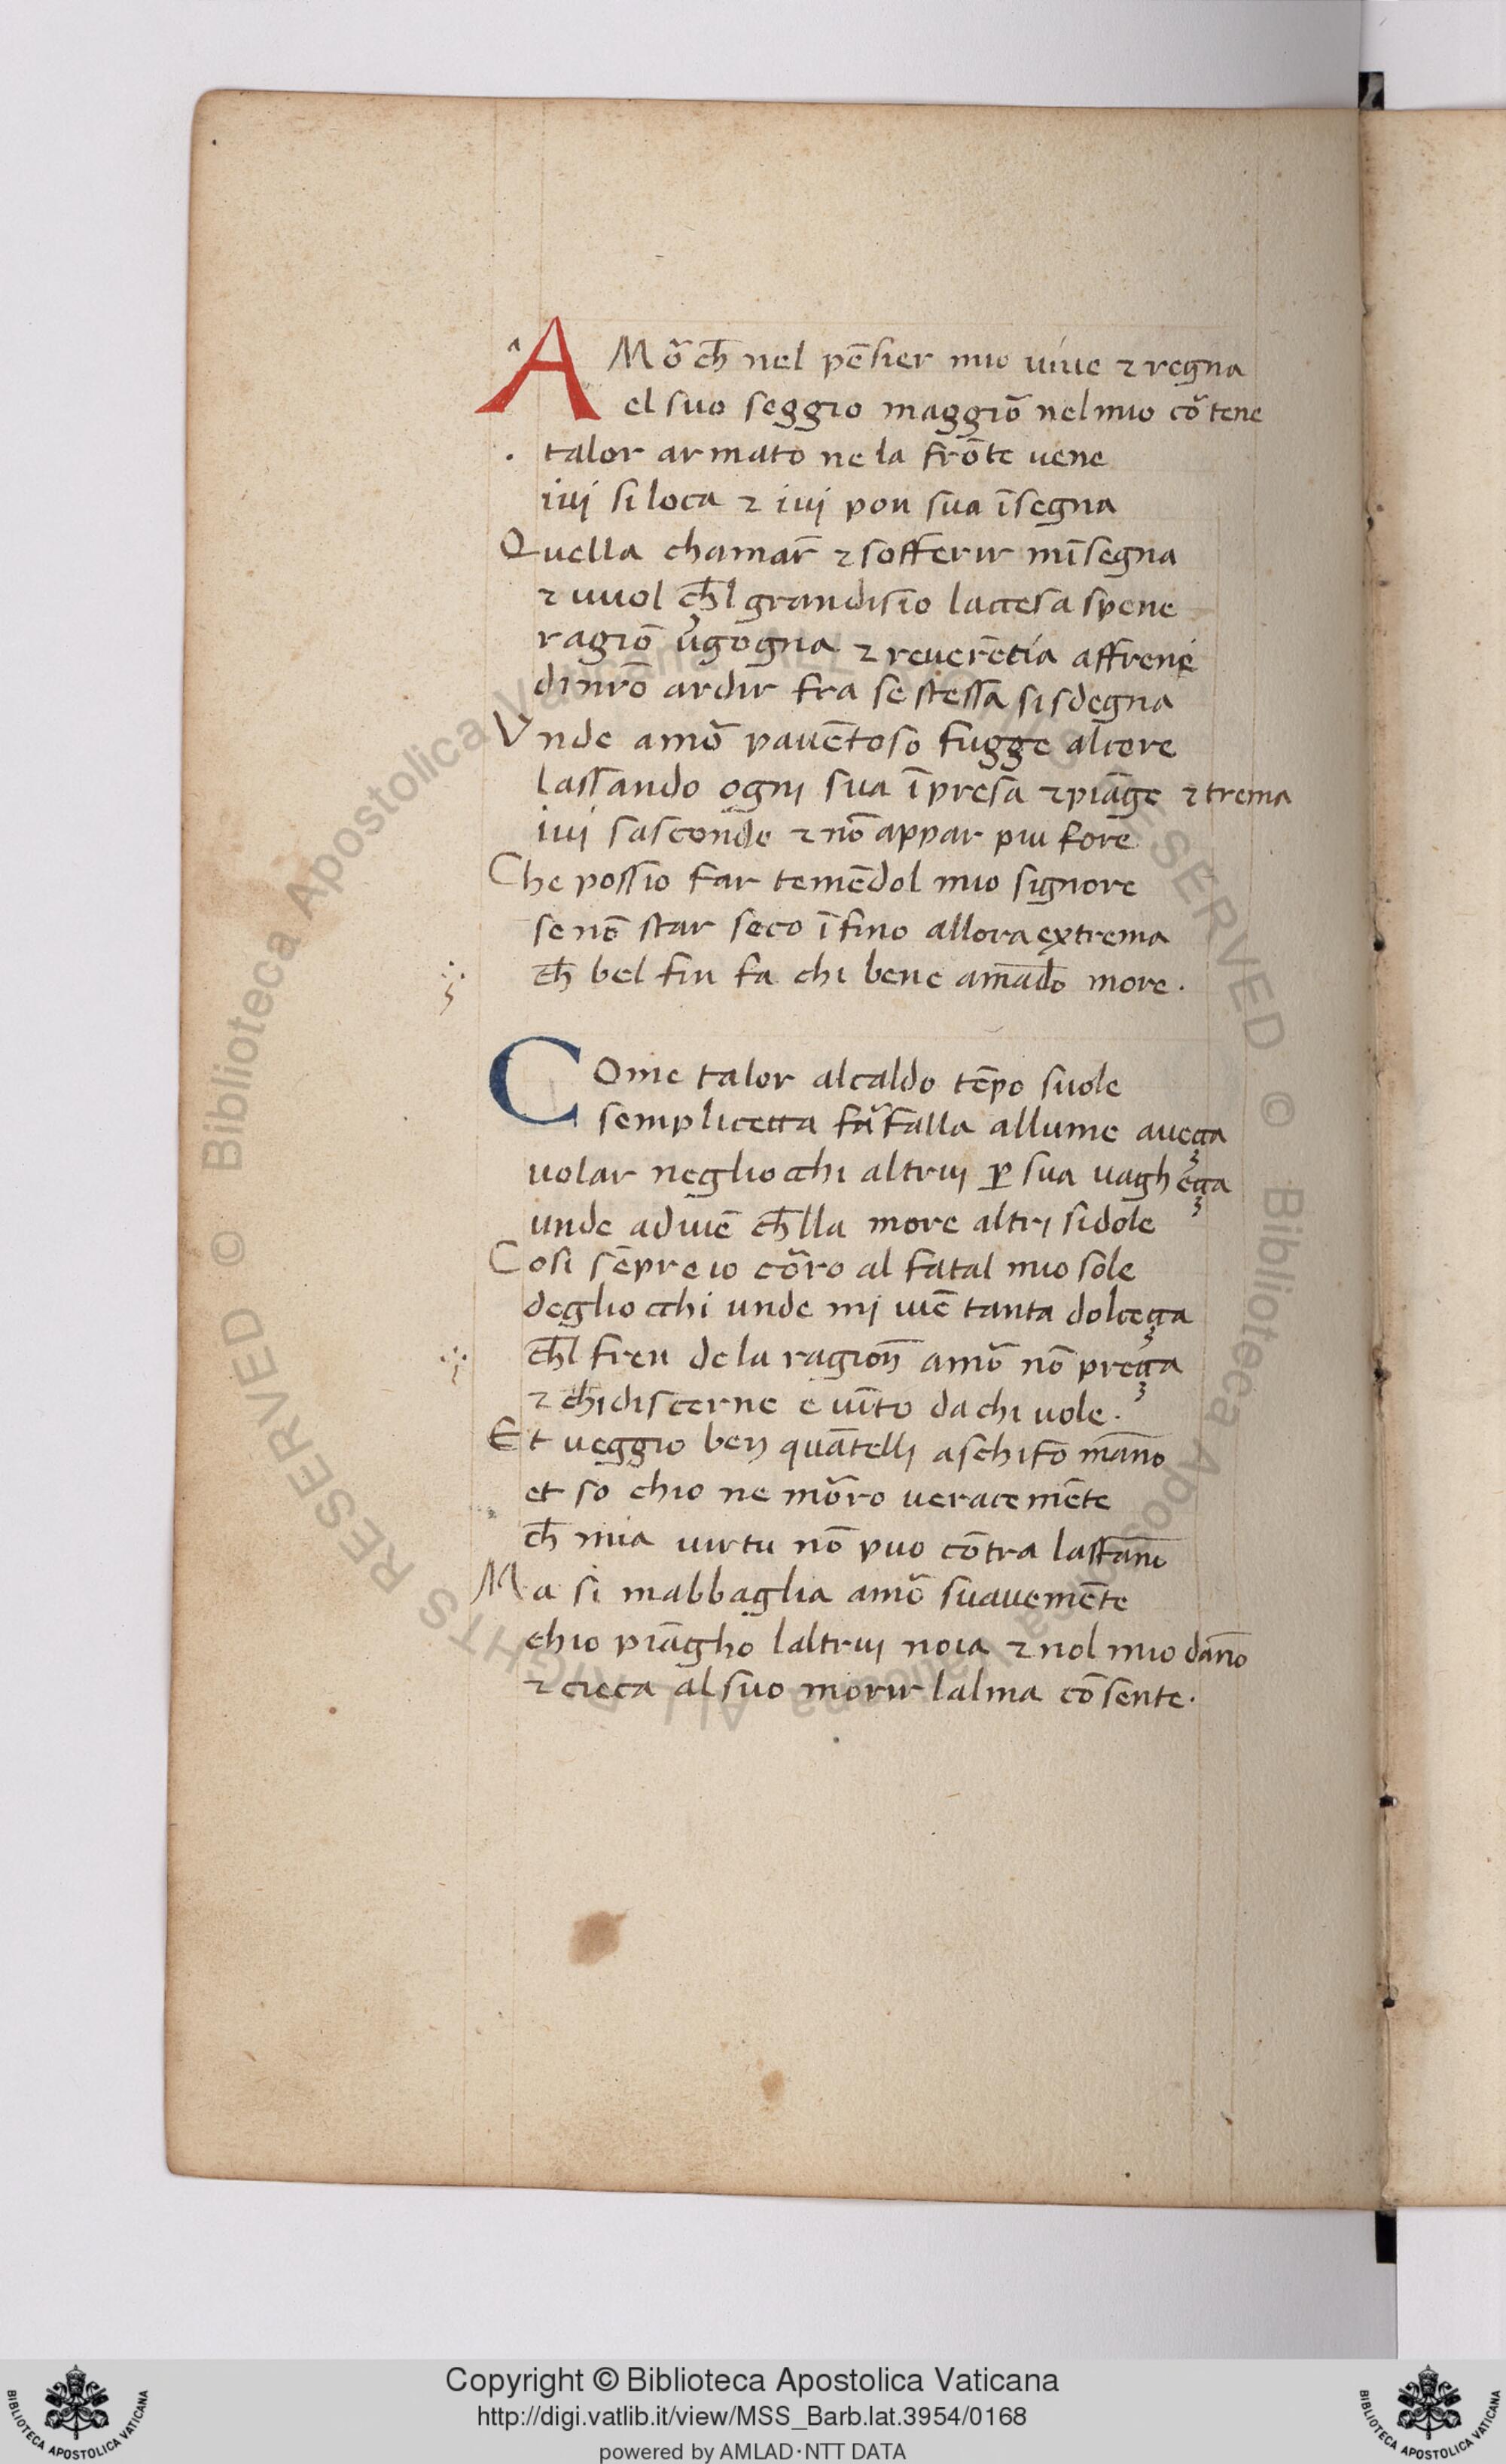 AMor̄ ch̄ nel pēsier mio uiue ⁊ regna
el suo seggio maggior̄ nel mio cor̄ tene
talor armato ne la frōte uene
iui si loca ⁊ iui pon sua īsegna
Quella chamar̄ ⁊ sofferir mīsegna
⁊ uuol ch̄l gran disīo laccesa spene
ragiō ūgogna ⁊ reuerētia affrene
di nrō ardir fra se stessa si sdegna
Vnde amō pauētoso fugge alcore
lassando ogni sua īpresa ⁊ piāge ⁊ trema
iui sasconde ⁊ nō appar piu fore
Che possio far temēdol mio signore
se nō star seco īfino allora extrema
ch̄ bel fin fa chi bene amādo more.
COme talor al caldo tēpo suole
semplicetta fāfalla allume aueçça
uolar negliocchi altrui ꝑ sua uagheçça
unde aduiē ch̄lla more altri si dole
Cosi sēpre io cōro al fatal mio sole
degliocchi unde mi uiē tanta dolceçça
ch̄l fren de la ragion̄ amō nō preçça
⁊ chi discerne e uīto da chi uole.
Et ueggio ben quātelli aschifo māno
et so chio ne mōro ueracemēte
ch̄ mia uirtu nō puo cōtra laffāno
Ma si mabbaglia amō suauemēte
chio piāgho laltrui noia ⁊ nol mio dāno
⁊ cieca al suo morir lalma cōsente.
Copyright © Biblioteca Apostolica Vaticana
http://digi.vatlib.it/view/MSS_Barb.lat.3954/0168
powered by AMLAD·NTT DATA